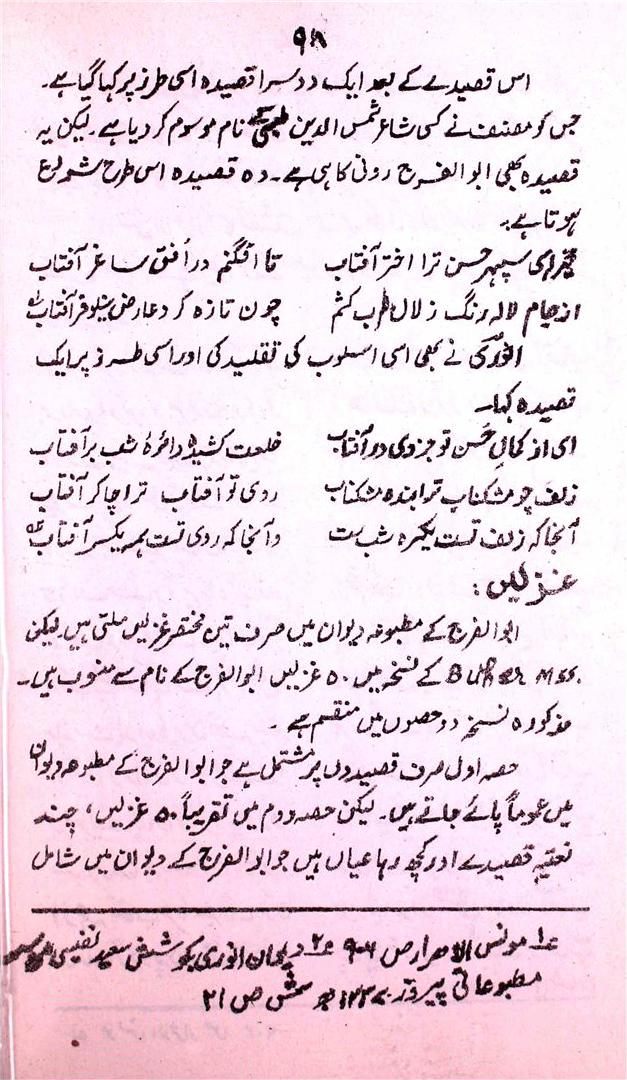 ۹۸
اس قصیدے کے بعد ایک دوسرا قصیدہ اسی طرز پر کہا گیا ہے۔
جس کو مصنف نے کسی شاعر شمس الدین کے نام موسوم کر دیا ہے۔ لیکن یہ
قصیدہ بھی ابوالفرج رونی کا ہی ہے۔ وہ قصیدہ اس طرح شروع
ہوتا ہے۔
ای سپہر حسن ترا اختر آفتاب تا افگنم در اُفق ساغر آفتاب
از جام لالہ رنگ زلال طرب کشم چون تازہ کرد عارض نیلوفر آفتاب
انوری نے بھی اسی اسلوب کی تقلید کی اور اسی طرز پر ایک
قصیدہ کہا۔
ای از کمالِ حُسن تو جزوی در آفتاب خطت کشیدہ دائرۂ شب بر آفتاب
زلف چو مشکناب ترا بندہ مشکناب روی تو آفتاب ترا چاکر آفتاب
آنجا کہ زلف تست یکسرہ شب ست وآنجا کہ روی تست ہمہ یکسر آفتاب
غزلیں:
ابوالفرج کے مطبوعہ دیوان میں صرف تین مختصر غزلیں ملتی ہیں۔ لیکن
Buhar Mss. کے نسخہ میں ۵۰ غزلیں ابوالفرج کے نام سے منسوب ہیں۔
مذکورہ نسخہ دو حصوں میں منقسم ہے۔
حصہ اول صرف قصیدوں پر مشتمل ہے جو ابوالفرج کے مطبوعہ دیوان
میں عموماً پائے جاتے ہیں۔ لیکن حصہ دوم میں تقریباً ۵۰ غزلیں، چند
نعتیہ قصیدے اور کچھ رباعیاں ہیں جو ابوالفرج کے دیوان میں شامل
۱ مونس الاحرار ص ۲ دیوان انوری بکوشش سعید نفیسی
مطبوعاتی پیروز ۱۳۳۷ شمسی ص ۲۱